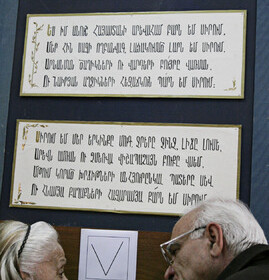 Ես իմ անուշ Հայաստանի արեւահամ բառն եմ սիրում,
Մեր հին սազի ողբանվագ, լացակումած լարն եմ սիրում,
Արնանման ծաղիկների ու վարդերի բույրը վառման,
Ու նաիրյան աղջիկների հեզաճկուն պարն եմ սիրում։
Սիրում եմ մեր երկինքը մուգ, ջրերը ջինջ, լիճը լուսե,
Արեւն ամռան ու ձմեռվա վիշապաձայն բուքը վսեմ,
Մթում կորած խրճիթների անհյուրընկալ պատերը սեւ,
Ու հնամյա քաղաքների հազարամյա քարն եմ սիրում։